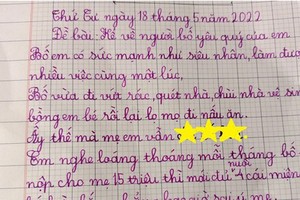 Thứ Tư ngày 18 tháng 5 năm 2022
Đề bài: Kể về người bố yêu quý của em
Bố em có sức mạnh như siêu nhân, làm được
nhiều việc cùng một lúc,
Bố vừa đi vứt rác, quét nhà, chùi nhà vệ sinh
bồng em bé rồi lại lo mọ đi nấu ăn.
Ấy thế mà mẹ em vẫn
Em nghe loáng thoáng mỗi tháng bố
nộp cho mẹ 15 triệu thì mới đủ nuôi 4 cái miệng